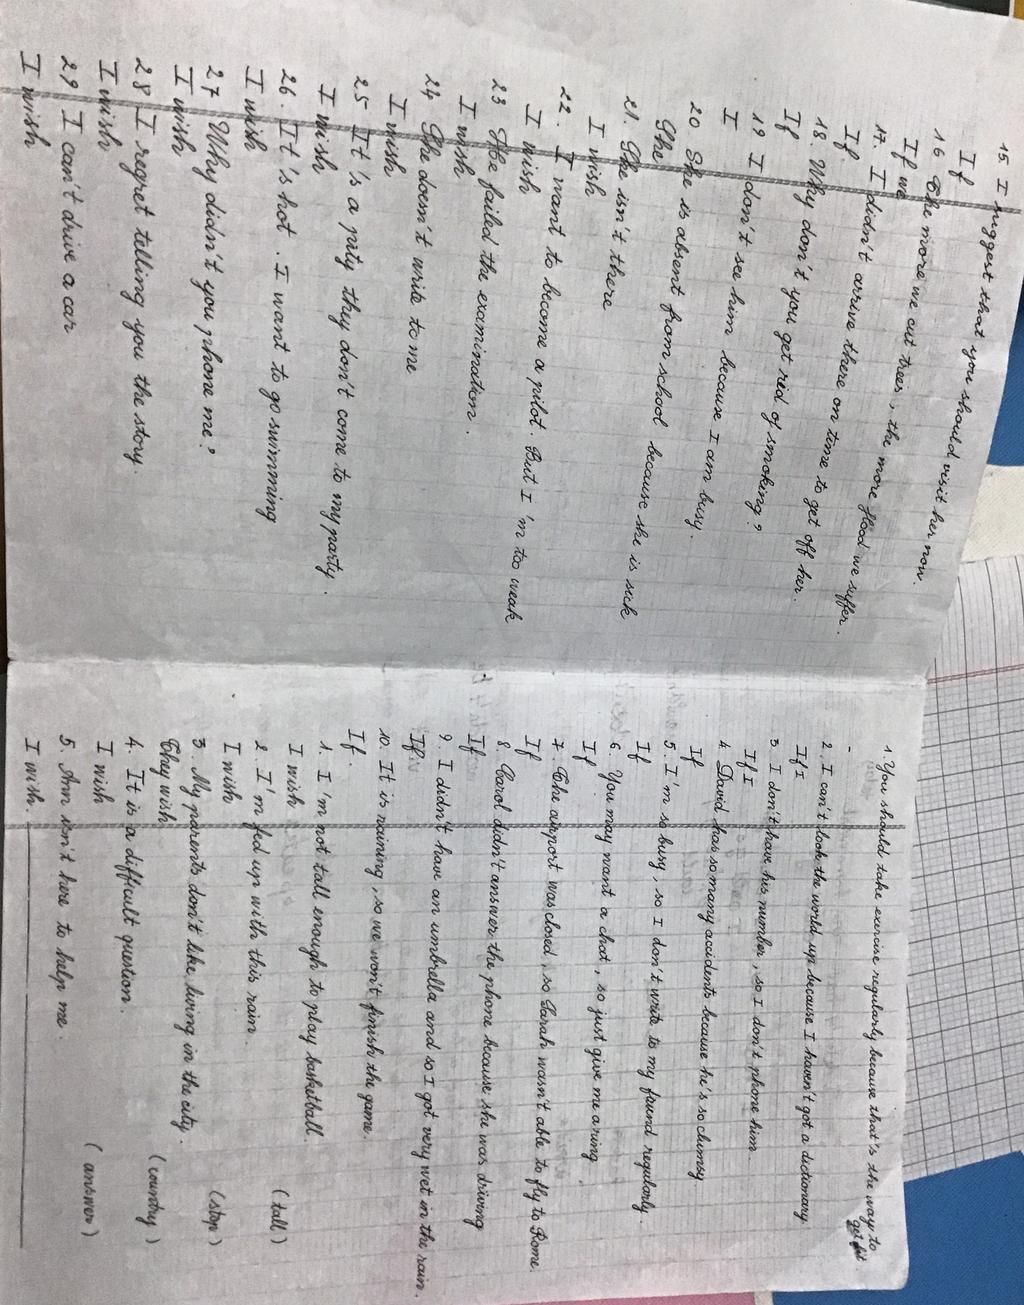 15. I suggest that you should visit her now.
If
16 The more we cut trees, the more flood we suffer.
If we
17. I didn't arrive there on time to get off her.
If
18. Why don't you get rid of smoking?
If
19 I don't see him because I am busy.
I
20 She is absent from school because she is sick
She
21. She isn't there
I wish
22. I want to become a pilot. But I'm too weak
I wish
23 She failed the examination.
I wish
24 She doesn't write to me
I wish
25 It's a pity they don't come to my party.
I wish
26. It's hot. I want to go swimming
I wish
27 Why didn't you phone me?
I wish
28 I regret telling you the story.
I wish
29 I can't drive a car
I wish
1 You should take exercise regularly because that's the way to
get fit
-
2. I can't look the world up because I haven't got a dictionary
If I
3. I don't have his number, so I don't phone him.
If I
4 David has so many accidents because he's so clumsy
If
5. I'm so busy, so I don't write to my found regularly.
If
6. You may want a chat, so just give me a ring.
If
7. The airport was closed, so Sarah wasn't able to fly to Rome.
If
8. Carol didn't answer the phone because she was driving
If
9. I didn't have an umbrella and so I got very wet in the rain.
If
10. It is raining, so we won't finish the game.
If.
1. I'm not tall enough to play basketball.
I wish (tall)
2. I'm fed up with this rain.
I wish (stop)
3. My parents don't like living in the city.
They wish (country)
4. It is a difficult question.
I wish (answer)
5. Ann isn't here to help me.
I wish